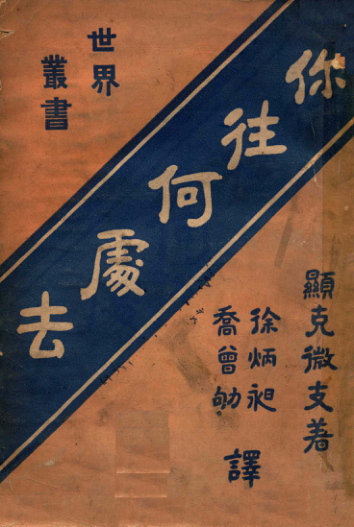 世界
叢書
你往何處去
顯克微支著
徐炳昶
喬曾劬
譯